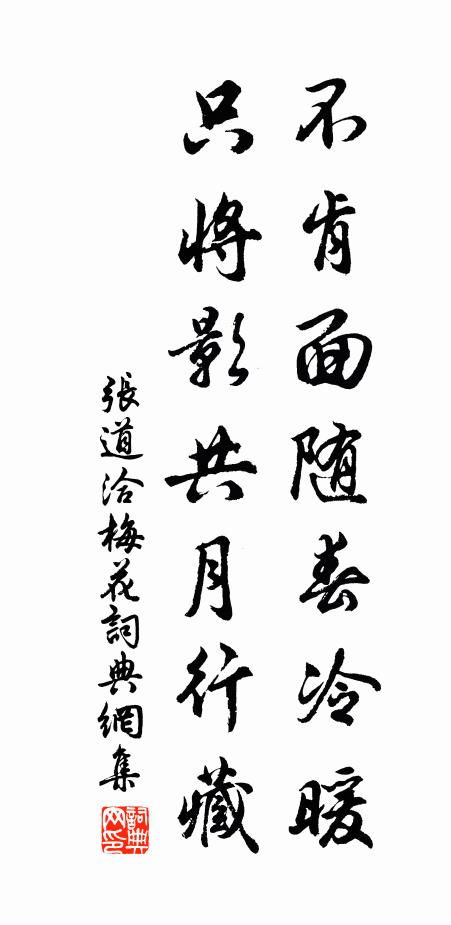 不肯面随春冷暖
只將影共月行藏
張道洽梅花詞典網集
詞典网印